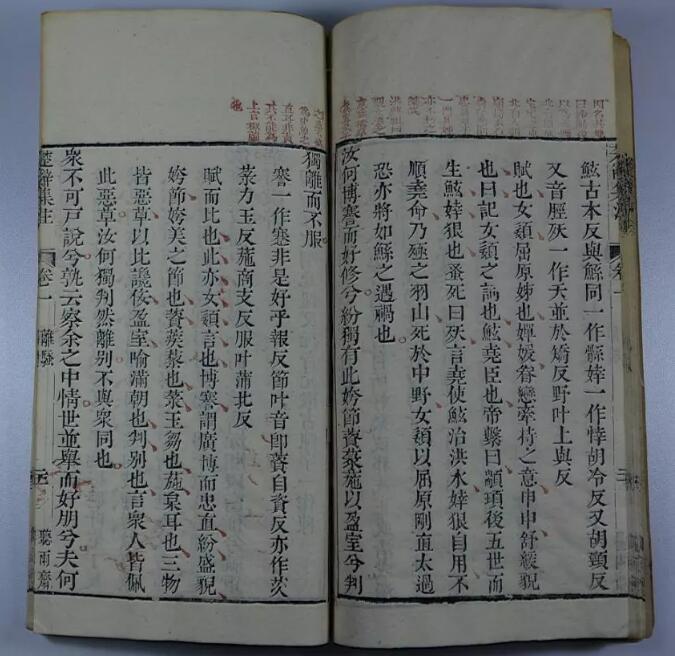 鮌古本反與鯀同一作鮌婞一作悻胡冷反又胡頸反
又音脛殀一作夭並於矯反野叶上與反
賦也女嬃屈原姊也嬋媛眷戀牽持之意申申舒緩貌
也曰記女嬃之詞也鮌堯臣也帝繫曰顓頊後五世而
生鮌婞狠也蚤死曰殀言堯使鮌治洪水婞狠自用不
順堯命乃殛之羽山死於中野女嬃以屈原剛直太過
恐亦將如鯀之遇禍也
汝何博謇而好修兮紛獨有此姱節薋菉葹以盈室兮判
獨離而不服
謇一作蹇非是好乎報反節叶音卽薋自資反亦作茨
菉力玉反葹商支反服叶蒲北反
賦而比也此亦女嬃言也博謇謂廣博而忠直紛盛貌
姱節姱美之節也薋蒺藜也菉王芻也葹枲耳也三物
皆惡草以比讒佞盈室喻滿朝也判別也言衆人皆佩
此惡草汝何獨判然離別不與衆同也
衆不可戶說兮孰云察余之中情世並舉而好朋兮夫何
楚辭集注 卷一 離騷 聽雨齋